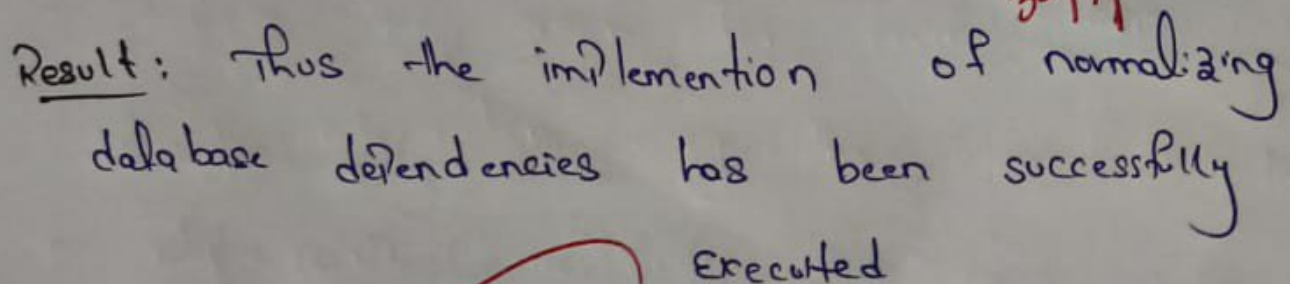 Result: Thus the implemention of normalizing
database dependencies has been successfully
Executed